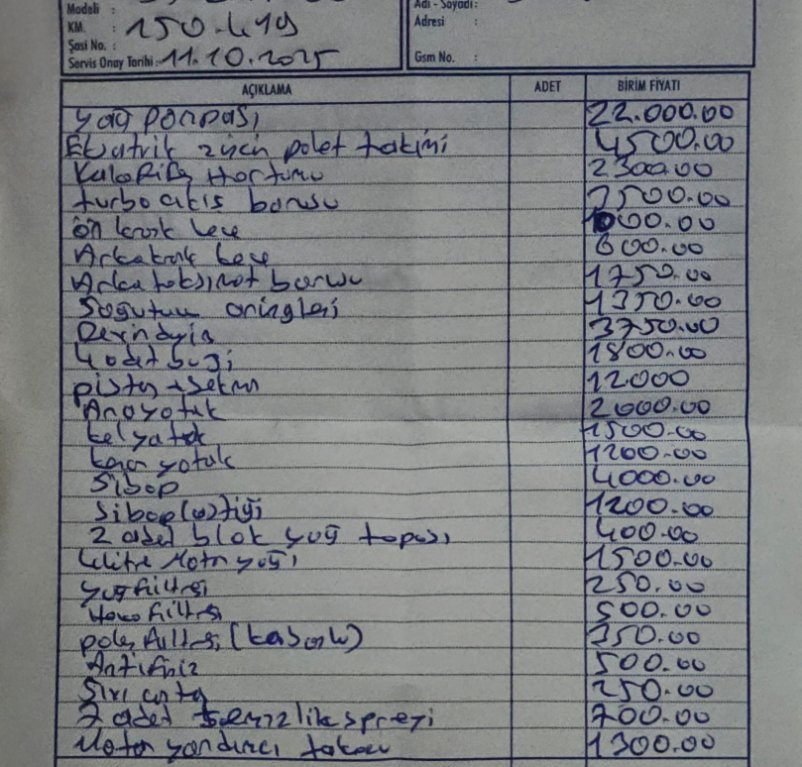 Modeli :
KM. : 150.419
Şasi No. :
Servis Onay Tarihi : 11.10.2025
Adı - Soyadı:
Adresi :
Gsm No. :
AÇIKLAMA ADET BİRİM FİYATI
yağ ponpası 22.000.00
zincir palet takimi 4500.00
Kalorifer Hortumu 2300.00
turbo cıkıs borusu 7500.00
ön krank kece 1000.00
Arka krank kece 600.00
Arka borusu 1750.00
Soğutucu oringleri 1350.00
3750.00
4 adet buji 1800.00
piston + sekman 12000
Anayatak 2000.00
kol yatak 1500.00
yatak 1200.00
Sibop 4000.00
Sibop lastiği 1200.00
2 adet blok yağ tapası 400.00
4 litre Motor yağı 1500.00
yağ filtresi 250.00
Hava filtresi 500.00
polen filtresi (kabonlu) 350.00
Antifiriz 500.00
Sıvı conta 250.00
7 adet temizlik spreyi 700.00
Motor yandırıcı takoz 1300.00